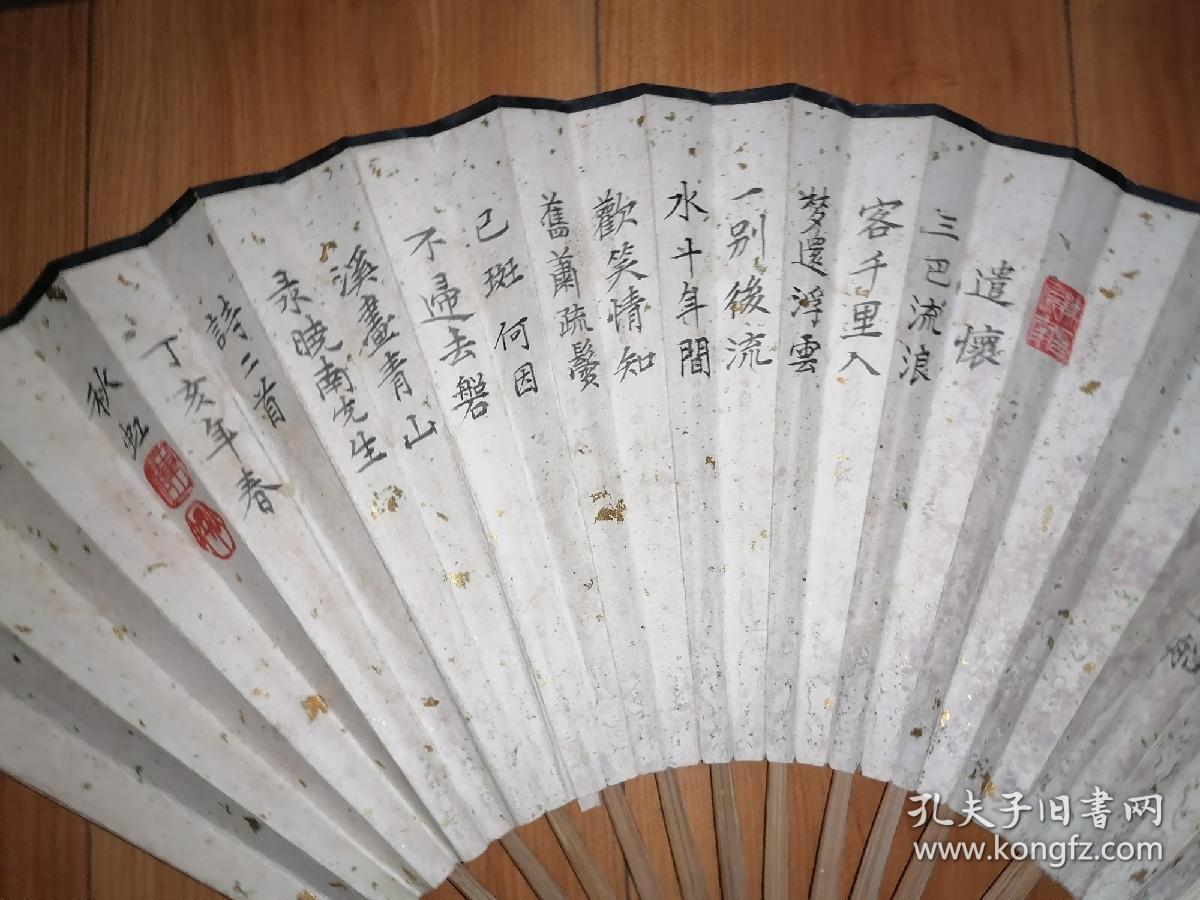 遣懷
三巴流浪
客千里入
梦還浮雲
一别後流
水斗年間
歡笑情知
舊蕭疏鬢
己斑何因
不過去磐
溪畫青山
录晓南先生
詩二首
丁亥年春
秋虹
孔夫子旧書网
www.kongfz.com